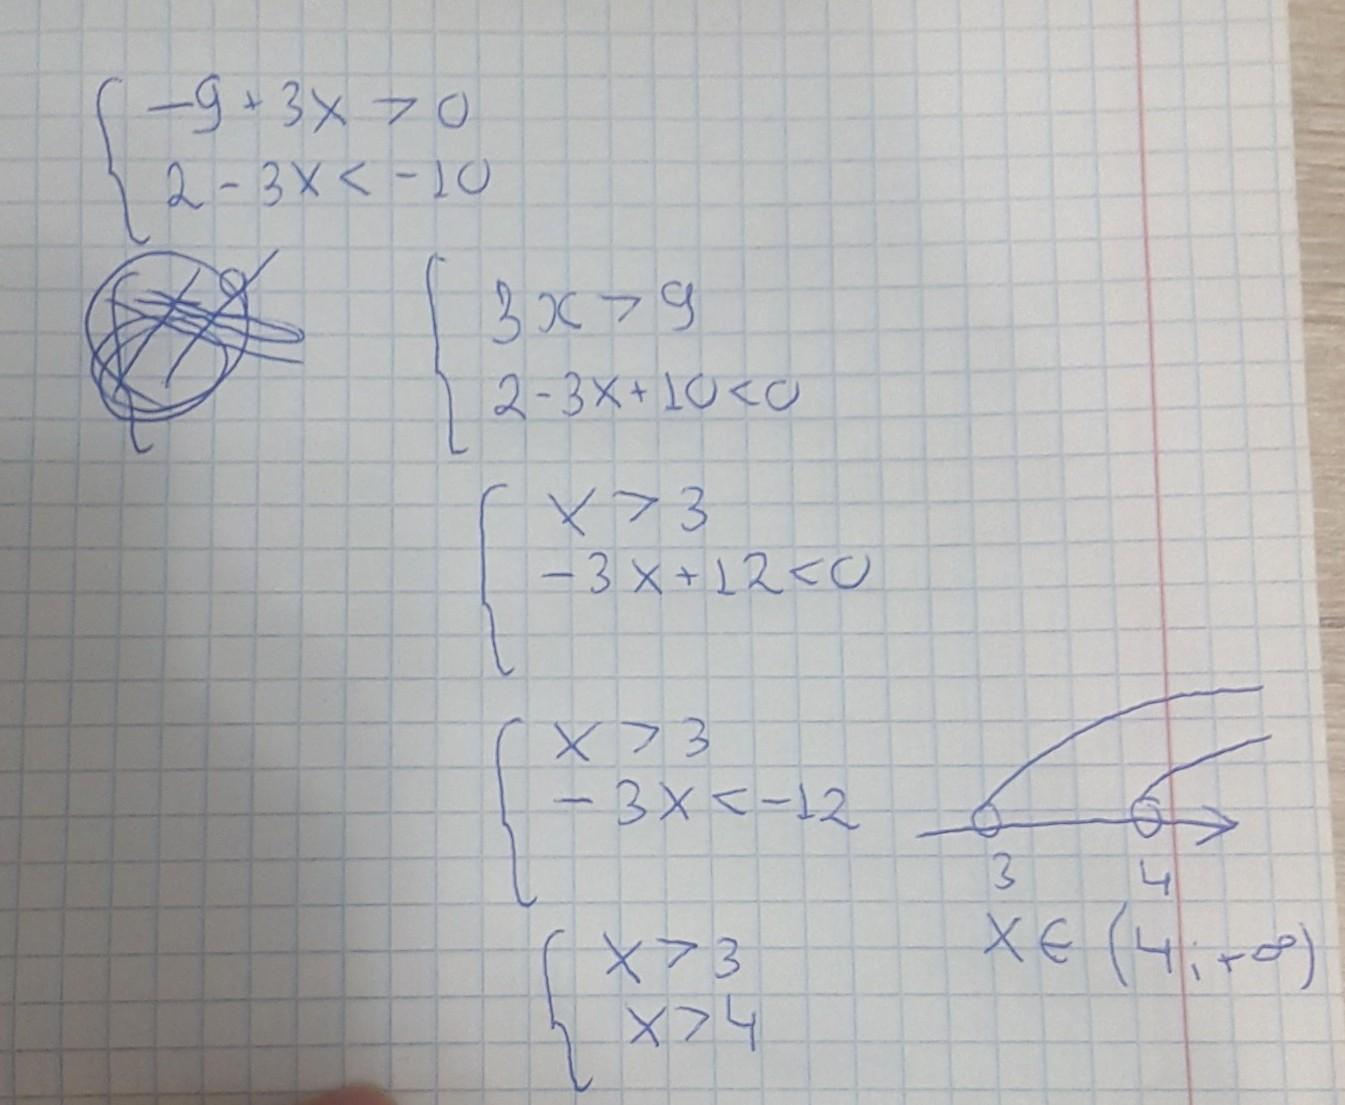 -9 + 3x > 0
2 - 3x < -10
3x > 9
2 - 3x + 10 < 0
x > 3
-3x + 12 < 0
x > 3
-3x < -12
3 4
x ∈ (4; +∞)
x > 3
x > 4